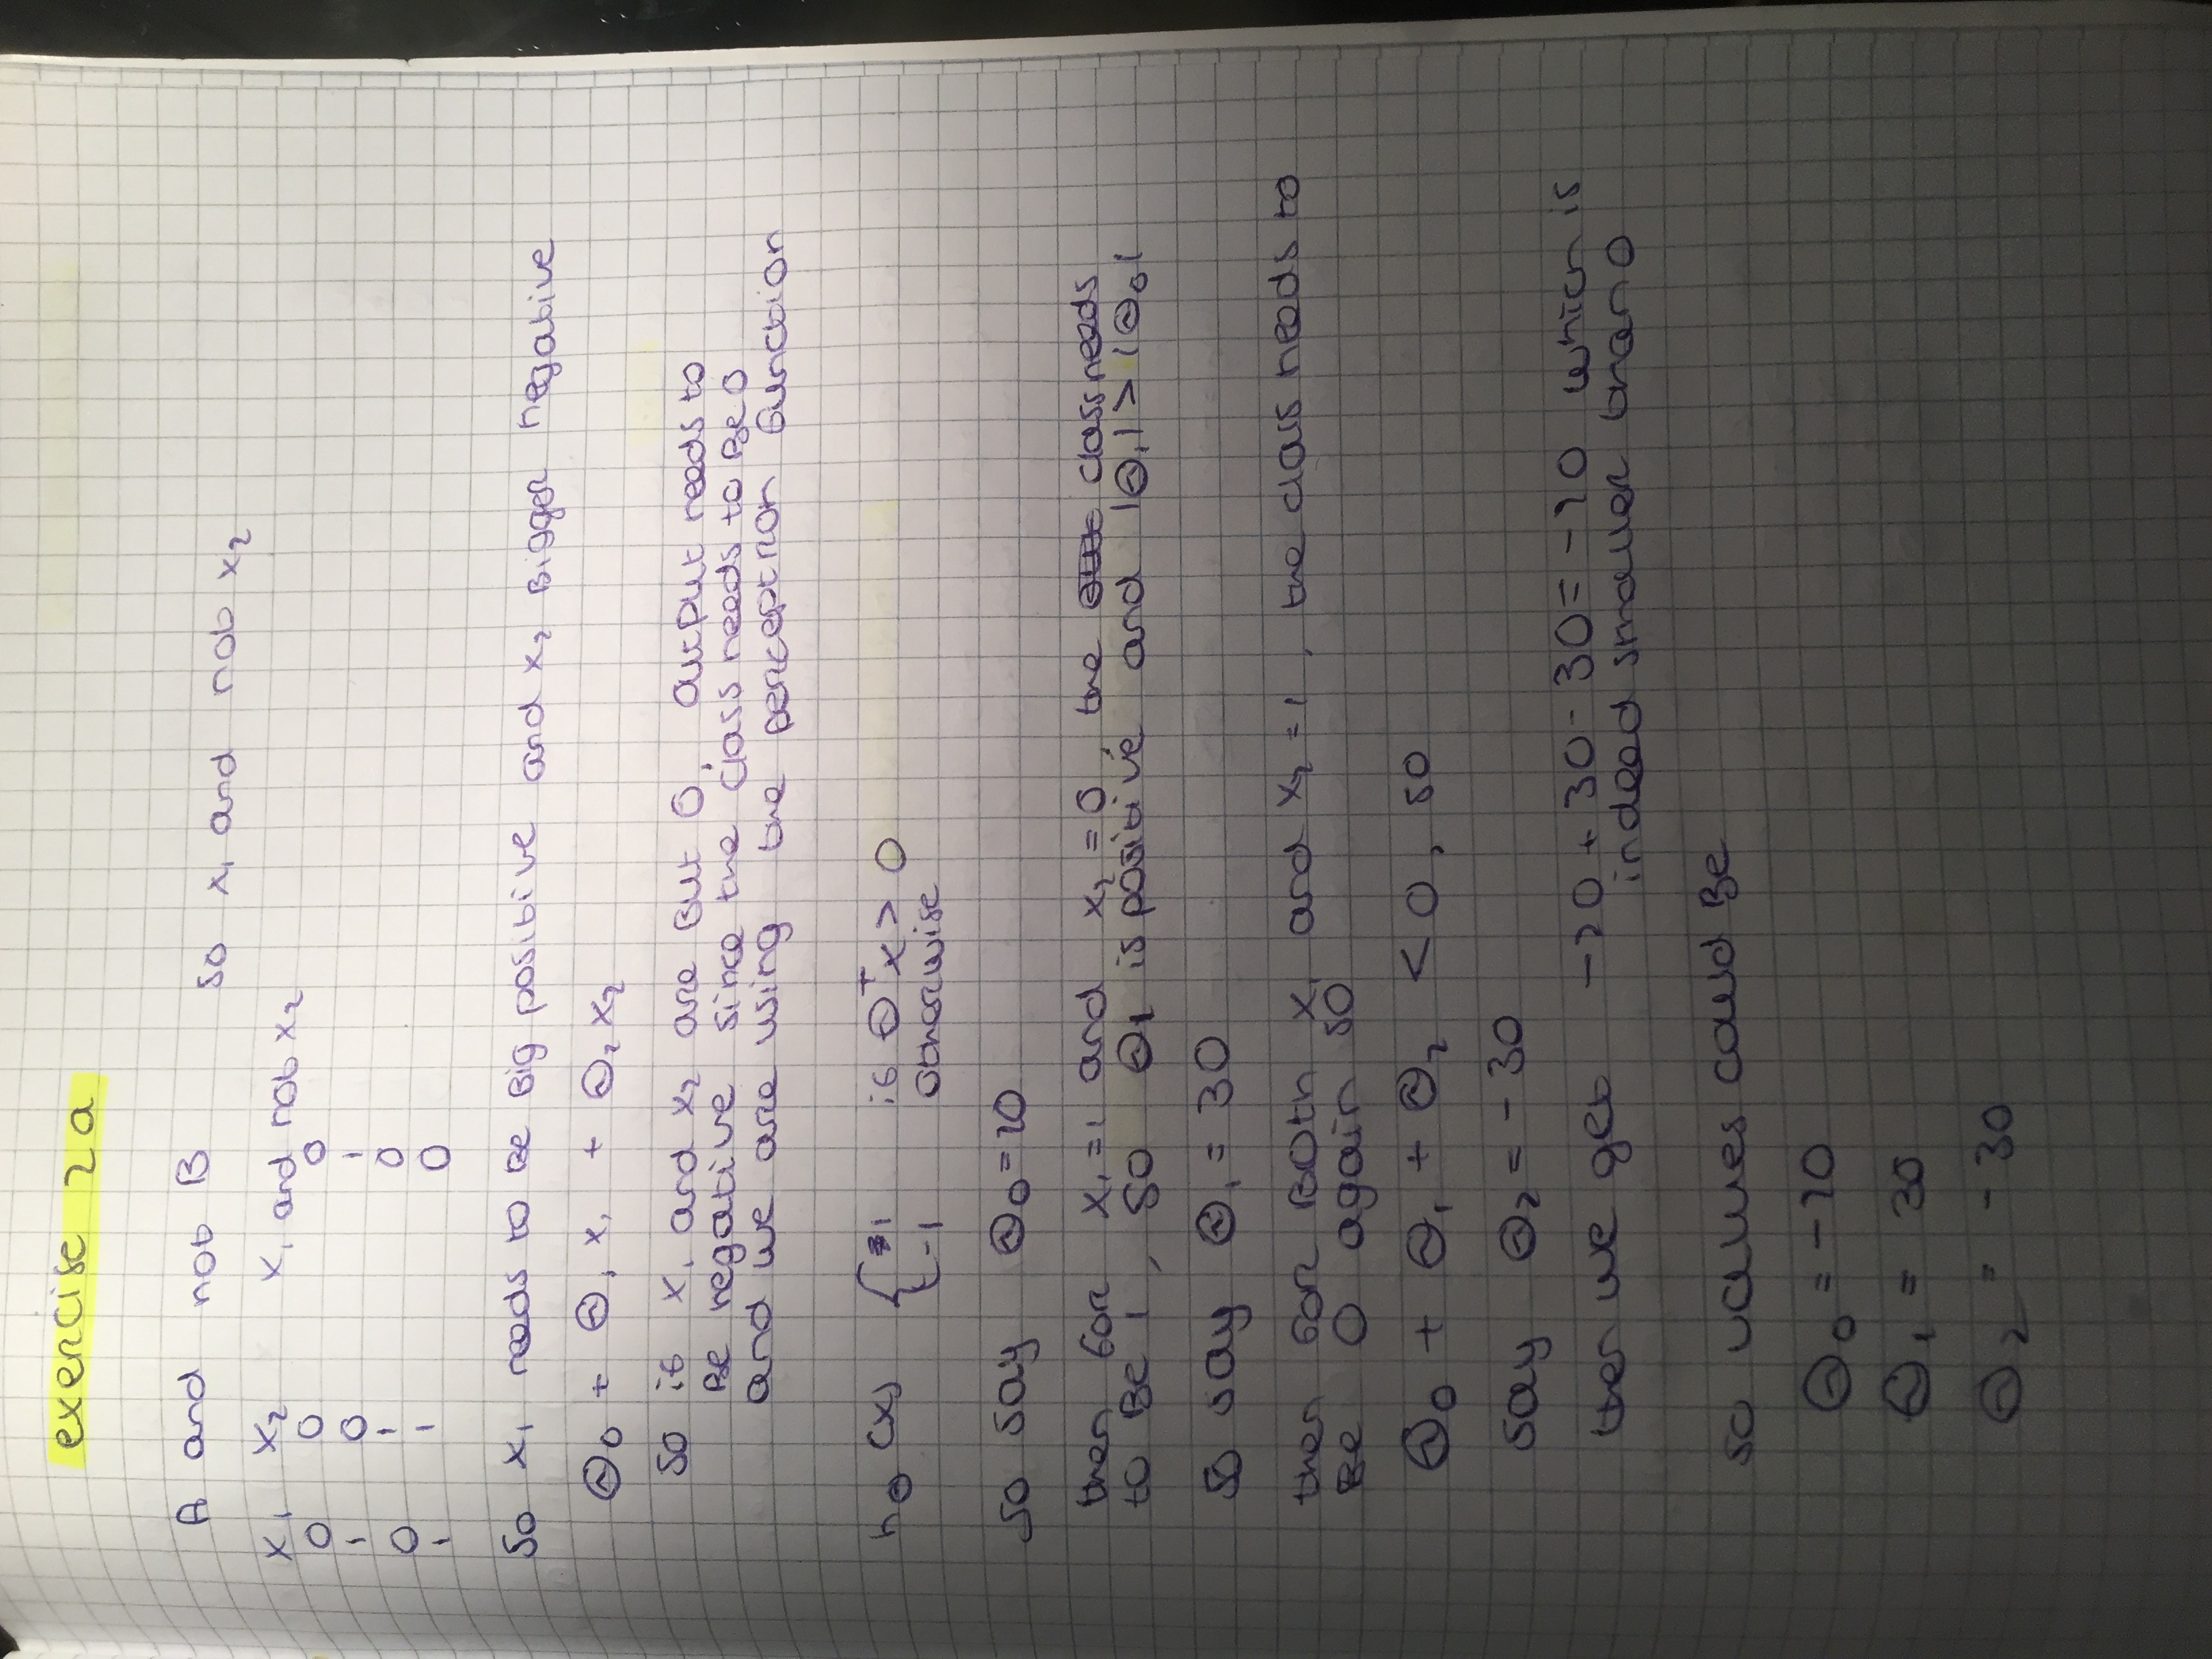 exercise 2a
A and not B so x₁ and not x₂
x₁ x₂ x₁ and not x₂
0 0 0
1 0 1
0 1 0
1 1 0
so x₁ needs to be big positive and x₂ bigger negative
Θ₀ + Θ₁x₁ + Θ₂x₂
so if x₁ and x₂ are but 0, output needs to
be negative since the class needs to be 0
and we are using the perceptron function
hΘ(x) { 1 if Θᵀx > 0
-1 otherwise
so say Θ₀ = 20
then for x₁ = 1 and x₂ = 0, the class needs
to be 1, so Θ₁ is positive and |Θ₁| > |Θ₀|
so say Θ₁ = 30
then for both x₁ and x₂ = 1, the class needs to
be 0 again so
Θ₀ + Θ₁ + Θ₂ < 0, so
say Θ₂ = -30
then we get -20 + 30 - 30 = -20 which is
indeed smaller than 0
so values could be
Θ₀ = -20
Θ₁ = 30
Θ₂ = -30